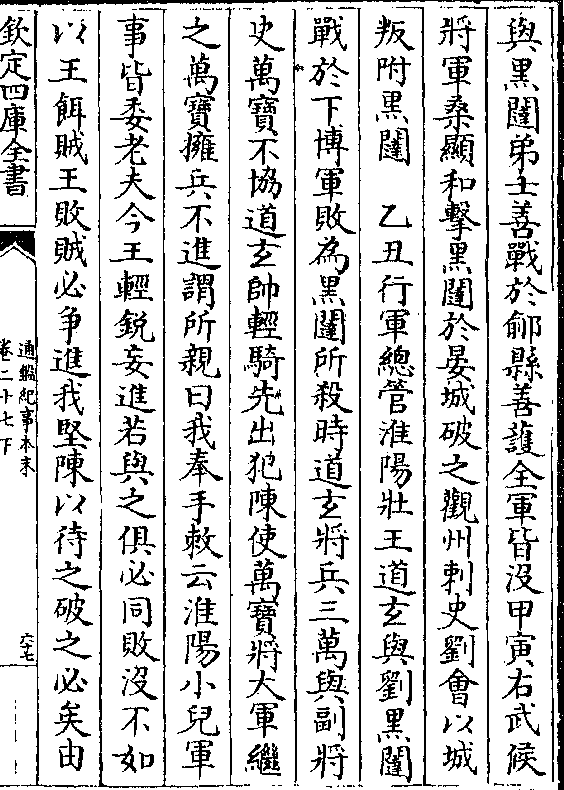 與黒闥弟士善戰於鄃縣善護全軍皆没甲寅右武候
將軍桑顯和擊黒闥於晏城破之觀州刺史劉會以城
叛附黒闥　乙丑行軍總管淮陽壯王道玄與劉黒闥
戰於下博軍敗為黒闥所殺時道玄將兵三萬與副將
史萬寶不恊道玄帥輕騎先出犯陳使萬寶將大軍繼
之萬寶擁兵不進謂所親曰我奉手敕云淮陽小兒軍
事皆委老夫今王輕銳妄進若與之俱必同敗沒不如
以王餌賊王敗賊必争進我堅陳以待之破之必矣由
欽定四庫全書
通鑑紀事本末
卷二十七下
六十七